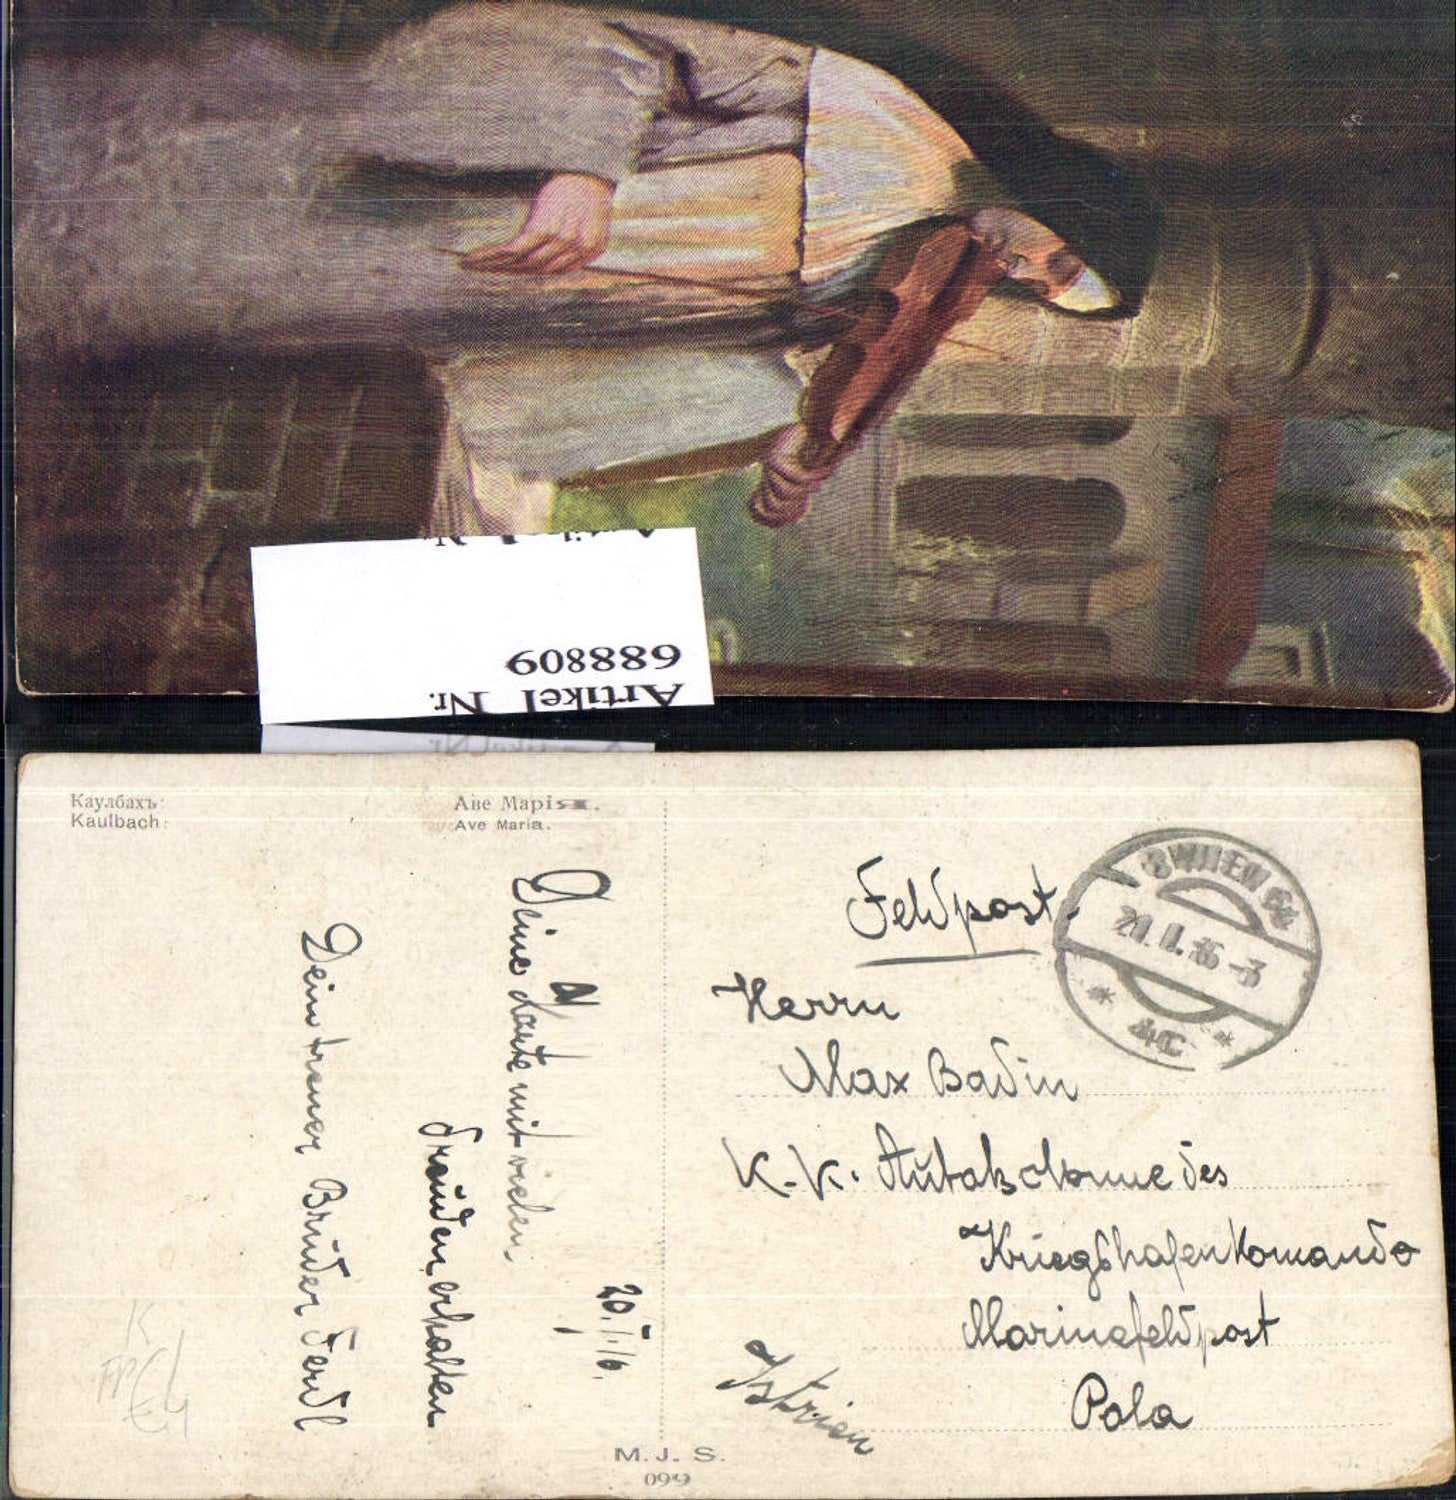 Artikel Nr.
688809
Artikel Nr.
Каулбахъ:
Kaulbach:
Аве Марія.
Ave Maria.
20./I./16.
Deine Karte mit vielen
Freuden erhalten
Dein treuer Bruder Ferdl
Feldpost.
Herrn
Max Badin
K.K. Autokolonne des
Kriegshafenkomando
Marinefeldpost
Pola
Istrien
WIEN
21. I. 16 -3
* 4C *
M. J. S.
099